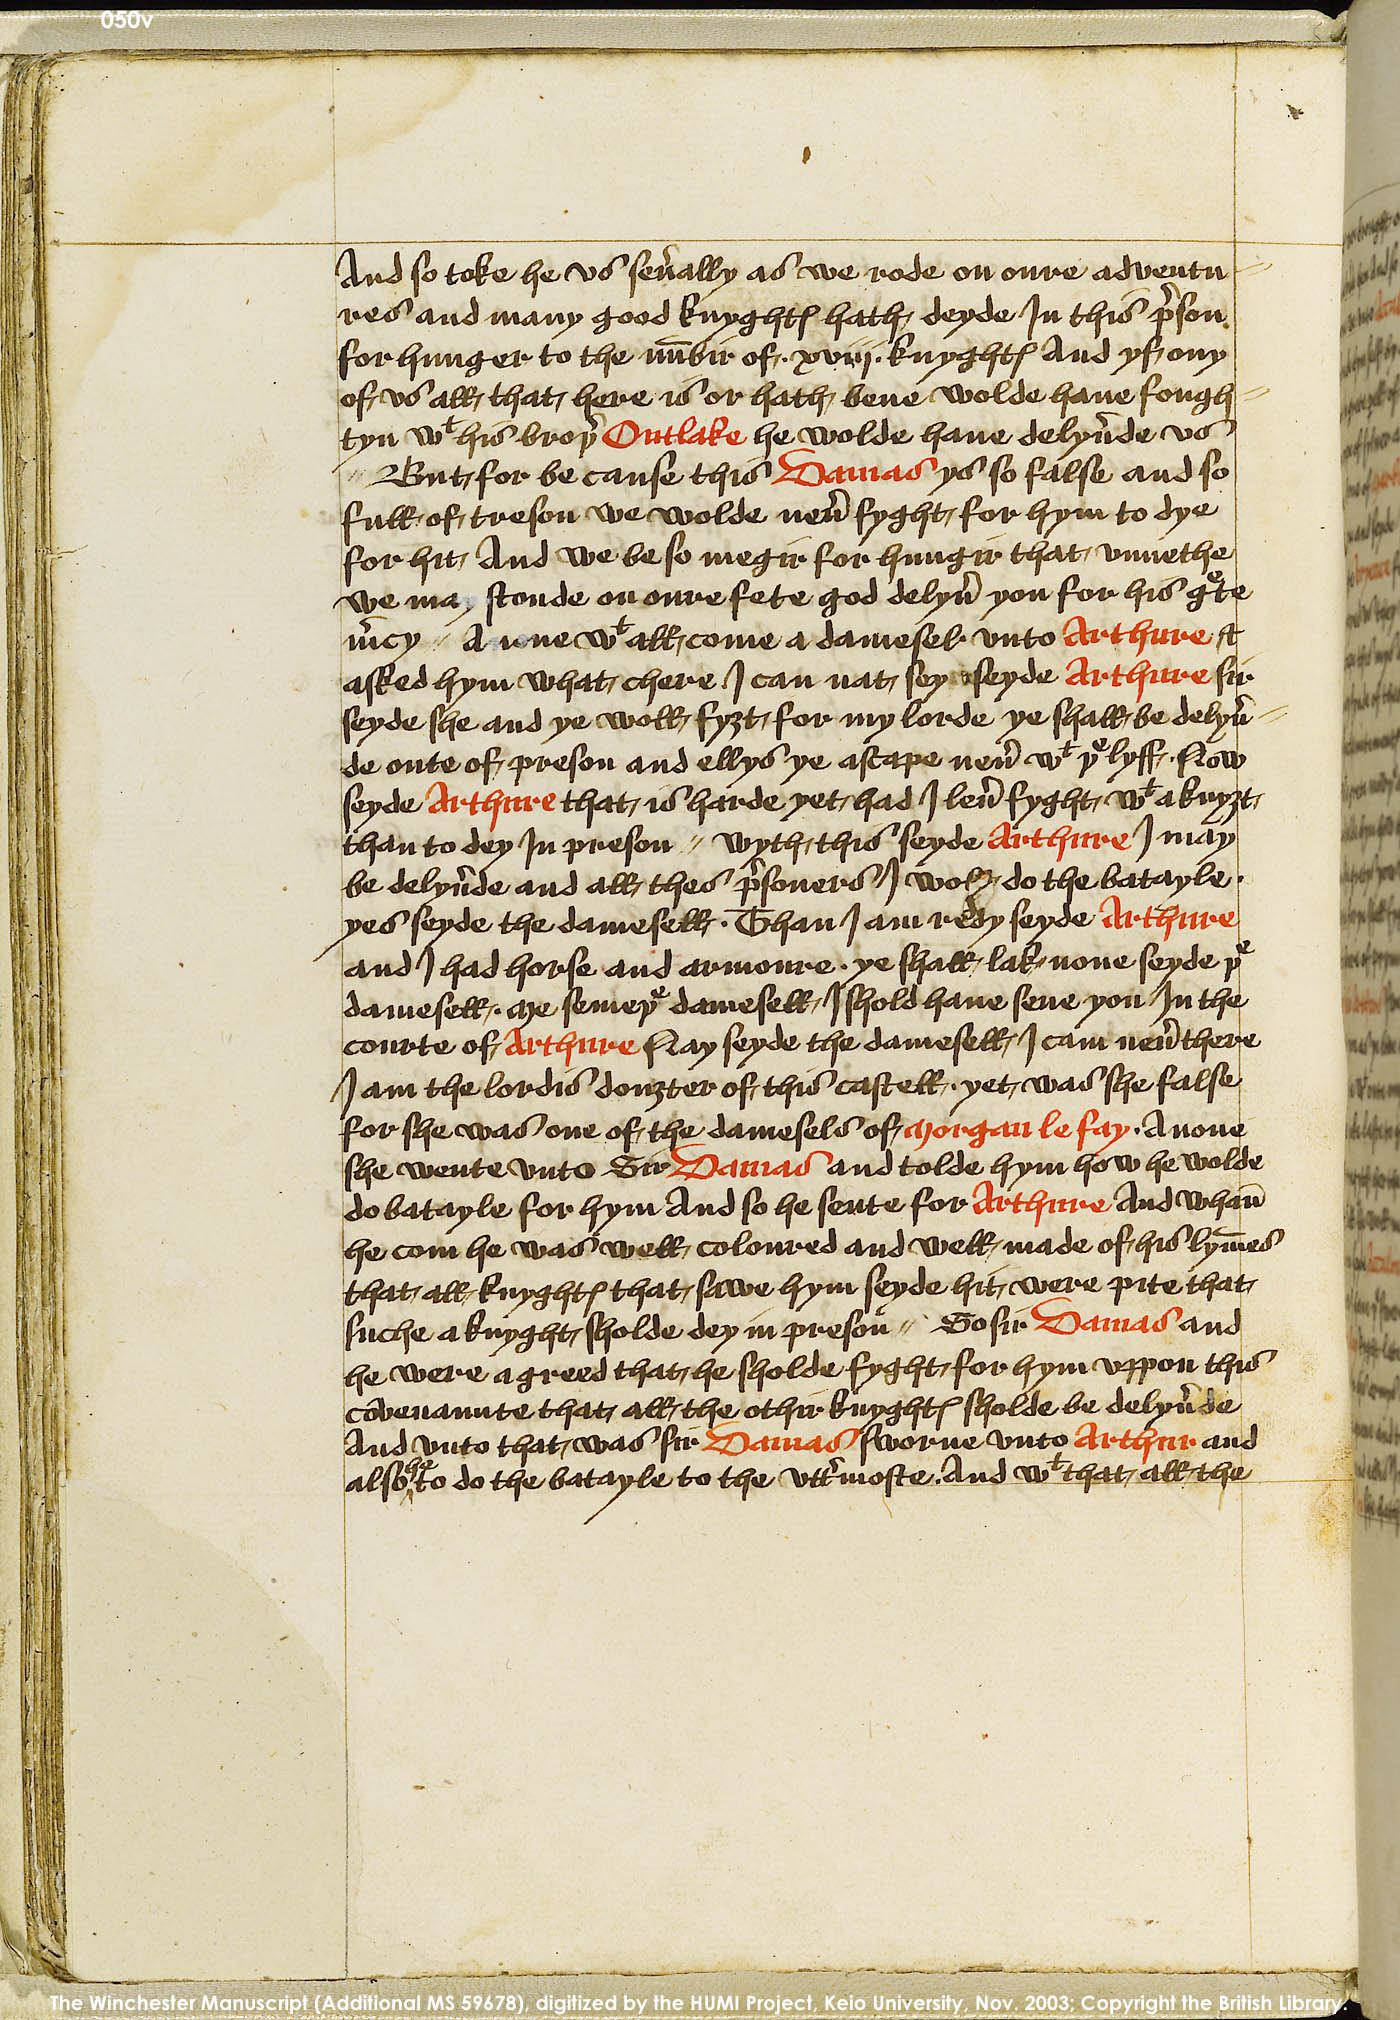 050v
And so toke he vs sen̄ally as we rode on oure adventu
res and many good knyghtꝭ hath deyde In this p̄son
for hunger to the nūbir of .xviij. knyghtꝭ And yf ony
of vs all that here is or hath bene wolde haue fough
tyn wᵗ his broþ̄ Outlake he wolde haue delyūde vs
// But for be cause this Damas ys so false and so
full of treson we wolde neū fyght for hym to dye
for hit And we be so megir for hungir that vnnethe
we may stonde on oure fete god delyū you for his gᵉte
m̄cy // A none wᵗ all come a damesel vnto Arthure &
asked hym what chere I can nat sey seyde Arthure sir
seyde she and ye woll fyȝt for my lorde ye shall be delyū
de oute of preson and ellys ye ascape neū wᵗ þᵉ lyff. Now
seyde Arthure that is harde yet had I leū fyght wᵗ a knyȝt
than to dey In preson // wyth this seyde Arthure I may
be delyūde and all thes p̄soners I woll do the batayle.
yes seyde the damesell. Than I am redy seyde Arthure
and I had horse and armoure. ye shall lak none seyde þᵉ
damesell. Me semeþᵉ damesell I shold haue sene you In the
courte of Arthure Nay seyde the damesell I cam neū there
I am the lordis douȝter of this castell. yet was she false
for she was one of the damesels of Morgan le fay. Anone
she wente vnto Sir Damas and tolde hym how he wolde
do batayle for hym And so he sente for Arthure And whan̄
he com he was well coloured and well made of his lym̄es
that all knyghtꝭ that sawe hym seyde hit were pite that
suche a knyght sholde dey in preson // So sir Damas and
he were agreed that he sholde fyght for hym vppon this
cōvenaunte that all the othir knyghtꝭ sholde be delyūde
And vnto that was sir Damas sworne vnto Arthur and
also he to do the batayle to the vtt̄moste. And wᵗ that all the
The Winchester Manuscript (Additional MS 59678), digitized by the HUMI Project, Keio University, Nov. 2003; Copyright the British Library.